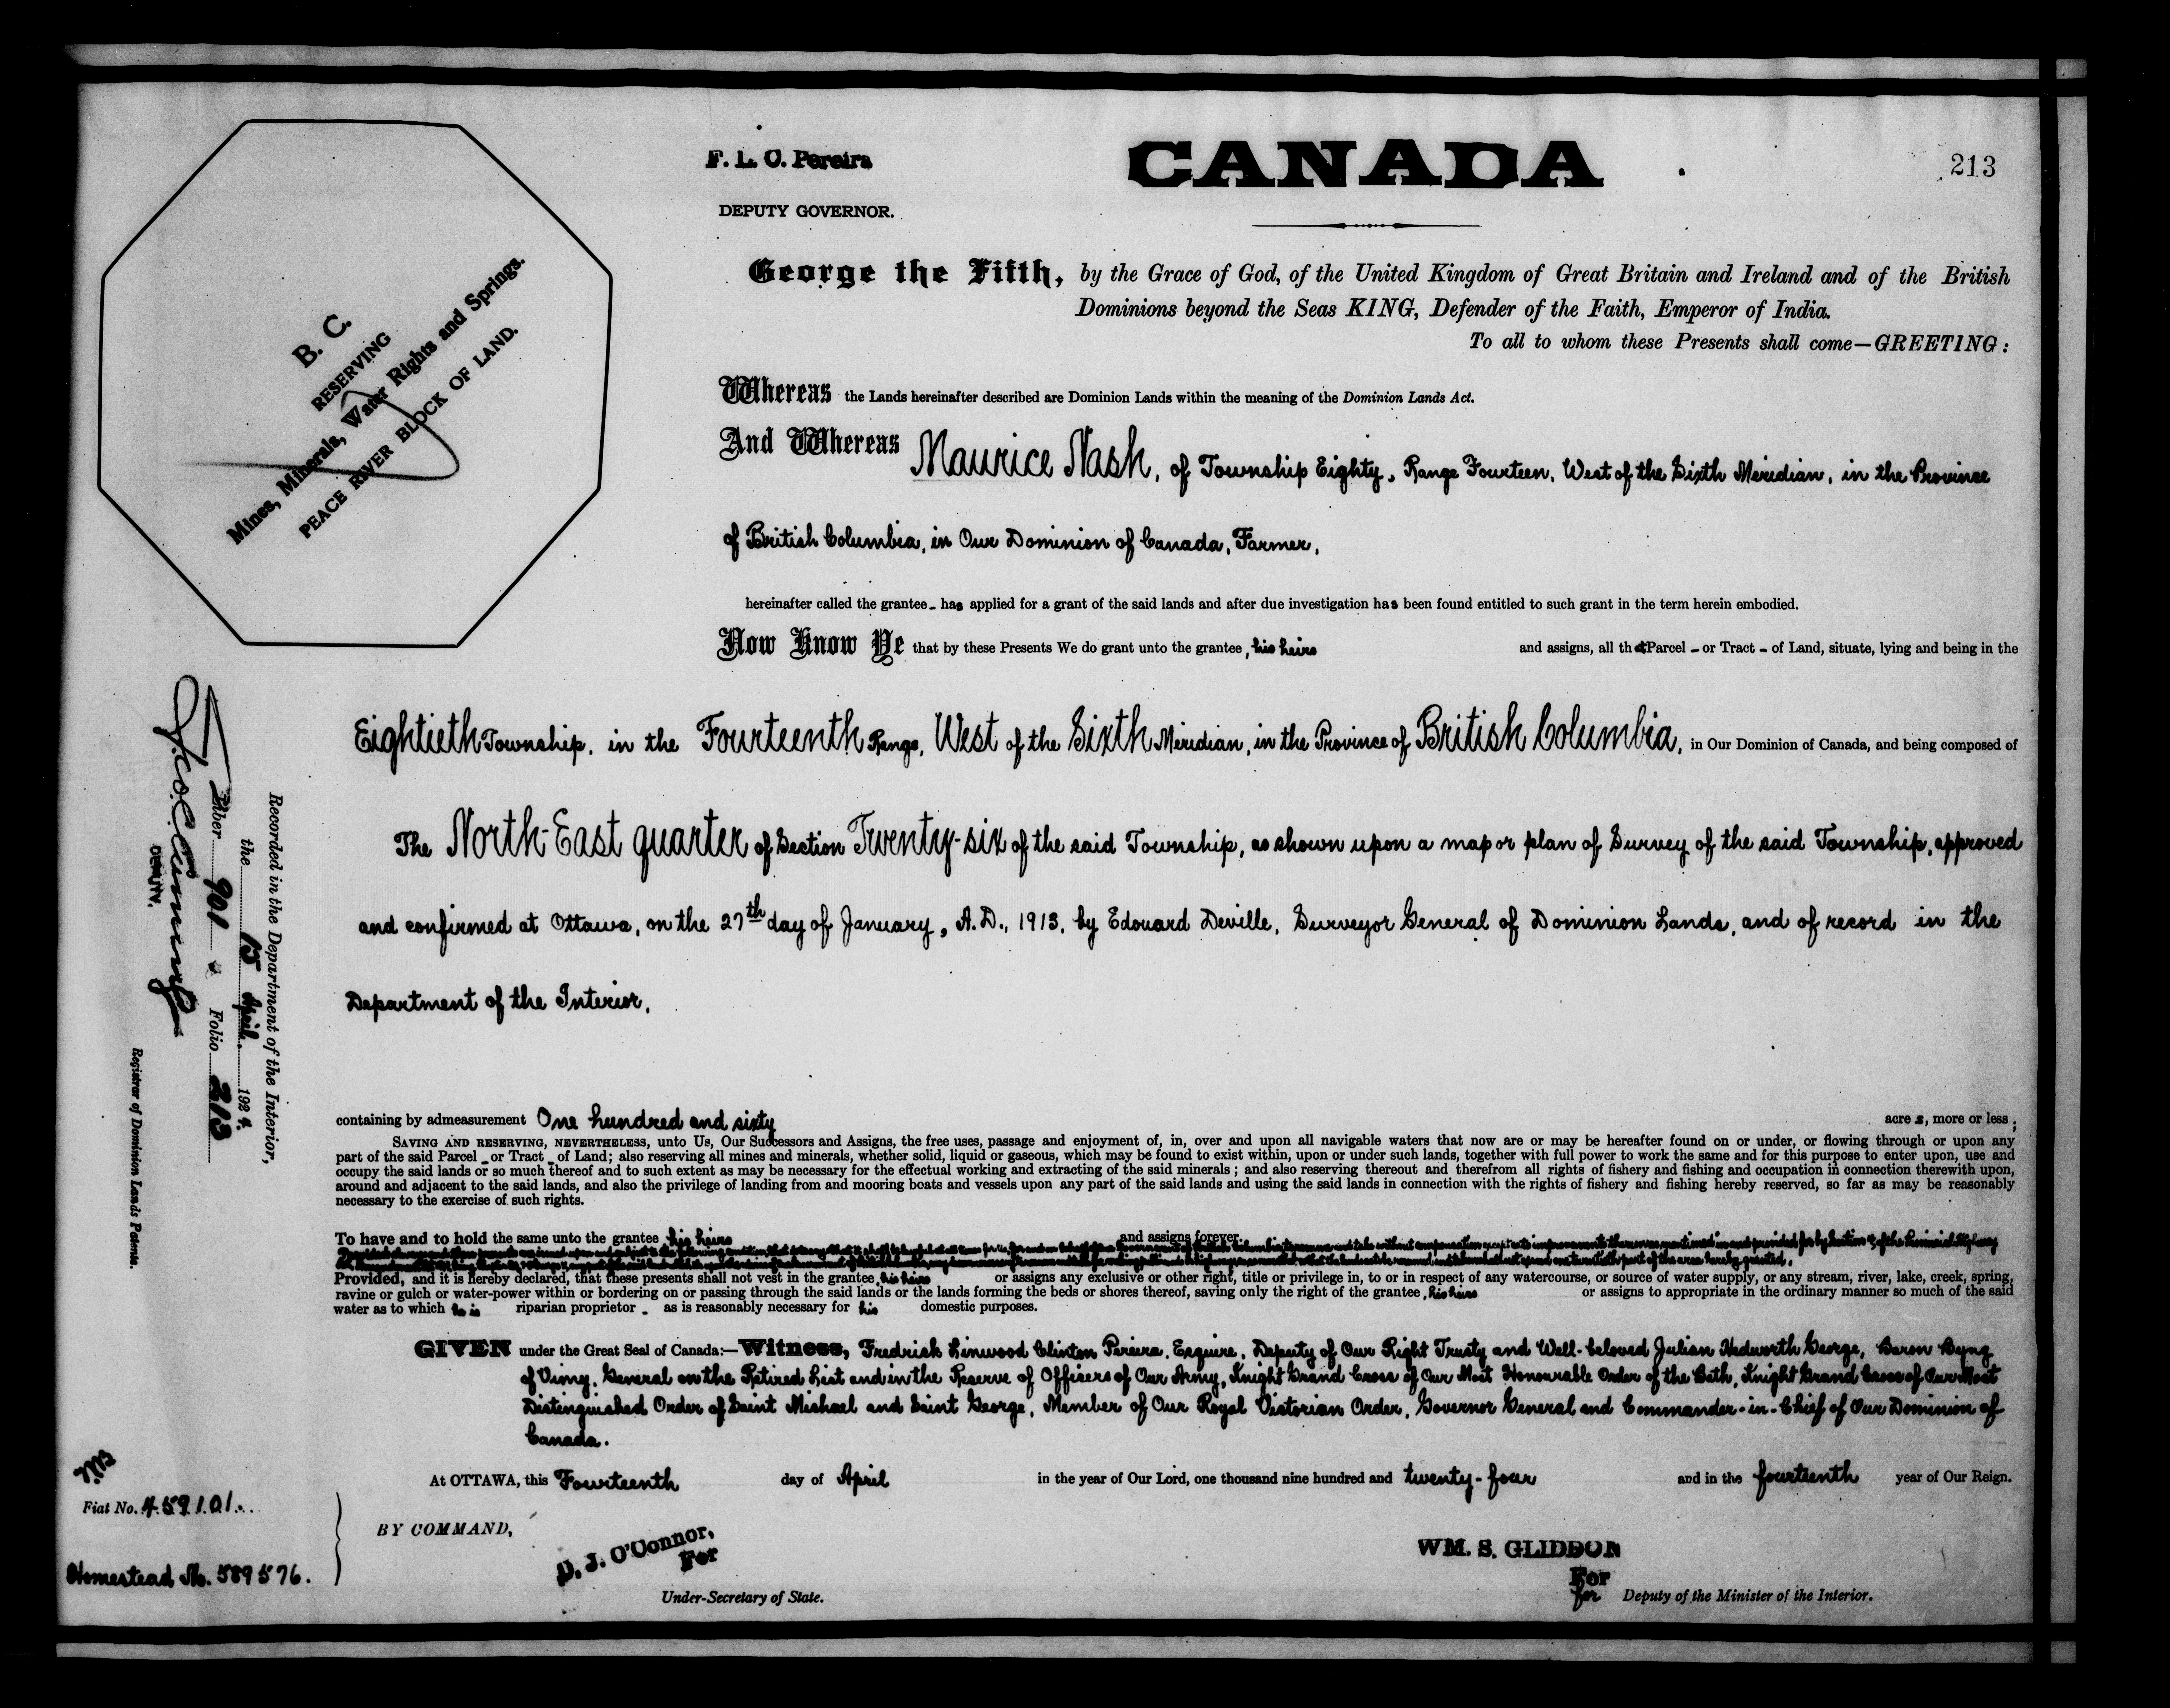 F. L. C. Pereira
DEPUTY GOVERNOR.
CANADA
213
B. C.
RESERVING
Mines, Minerals, Water Rights and Springs.
PEACE RIVER BLOCK OF LAND.
George the Fifth, by the Grace of God, of the United Kingdom of Great Britain and Ireland and of the British
Dominions beyond the Seas KING, Defender of the Faith, Emperor of India.
To all to whom these Presents shall come—GREETING:
Whereas the Lands hereinafter described are Dominion Lands within the meaning of the Dominion Lands Act.
And Whereas Maurice Nash, of Township Eighty, Range Fourteen, West of the Sixth Meridian, in the Province
of British Columbia, in Our Dominion of Canada, Farmer,
hereinafter called the grantee - has applied for a grant of the said lands and after due investigation has been found entitled to such grant in the term herein embodied.
Now Know Ye that by these Presents We do grant unto the grantee, his heirs and assigns, all that Parcel - or Tract - of Land, situate, lying and being in the
Eightieth Township, in the Fourteenth Range, West of the Sixth Meridian, in the Province of British Columbia, in Our Dominion of Canada, and being composed of
The North-East quarter of Section Twenty-six of the said Township, as shown upon a map or plan of Survey of the said Township, approved
and confirmed at Ottawa, on the 27th day of January, A.D., 1913, by Edouard Deville, Surveyor General of Dominion Lands, and of record in the
Department of the Interior,
containing by admeasurement One hundred and sixty acres, more or less;
SAVING AND RESERVING, NEVERTHELESS, unto Us, Our Successors and Assigns, the free uses, passage and enjoyment of, in, over and upon all navigable waters that now are or may be hereafter found on or under, or flowing through or upon any
part of the said Parcel - or Tract - of Land; also reserving all mines and minerals, whether solid, liquid or gaseous, which may be found to exist within, upon or under such lands, together with full power to work the same and for this purpose to enter upon, use and
occupy the said lands or so much thereof and to such extent as may be necessary for the effectual working and extracting of the said minerals; and also reserving thereout and therefrom all rights of fishery and fishing and occupation in connection therewith upon,
around and adjacent to the said lands, and also the privilege of landing from and mooring boats and vessels upon any part of the said lands and using the said lands in connection with the rights of fishery and fishing hereby reserved, so far as may be reasonably
necessary to the exercise of such rights.
To have and to hold the same unto the grantee, his heirs and assigns forever.
Provided, and it is hereby declared, that these presents shall not vest in the grantee, his heirs or assigns any exclusive or other right, title or privilege in, to or in respect of any watercourse, or source of water supply, or any stream, river, lake, creek, spring,
ravine or gulch or water-power within or bordering on or passing through the said lands or the lands forming the beds or shores thereof, saving only the right of the grantee, his heirs or assigns to appropriate in the ordinary manner so much of the said
water as to which he is riparian proprietor - as is reasonably necessary for his domestic purposes.
GIVEN under the Great Seal of Canada:—Witness, Fredrick Linwood Clinton Pereira, Esquire, Deputy of Our Right Trusty and Well-beloved Julian Hedworth George, Baron Byng
of Vimy, General on the Retired List and in the Reserve of Officers of Our Army, Knight Grand Cross of Our Most Honourable Order of the Bath, Knight Grand Cross of Our Most
Distinguished Order of Saint Michael and Saint George, Member of Our Royal Victorian Order, Governor General and Commander-in-Chief of Our Dominion of
Canada.
At OTTAWA, this Fourteenth day of April in the year of Our Lord, one thousand nine hundred and twenty-four and in the fourteenth year of Our Reign.
BY COMMAND,
D. J. O'Connor,
For
Under-Secretary of State.
WM. S. GLIDDON
For
for Deputy of the Minister of the Interior.
Recorded in the Department of the Interior,
the 15 April, 1924.
Liber 901 Folio 213
DEPUTY.
Registrar of Dominion Lands Patents.
Fiat No. 459101
Homestead No. 589576.